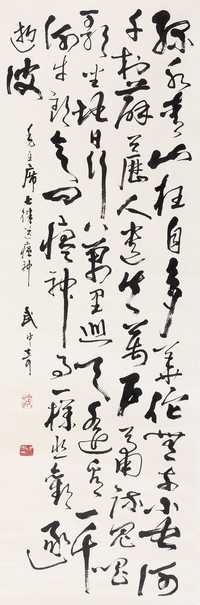 绿水青山枉自多華佗無奈小虫何
千村薜荔人遗矢萬户萧疏鬼唱
歌坐地日行八萬里巡天遥看一千
河牛郎欲问瘟神事一樣悲歡逐
逝波
毛主席七律送瘟神 武中奇